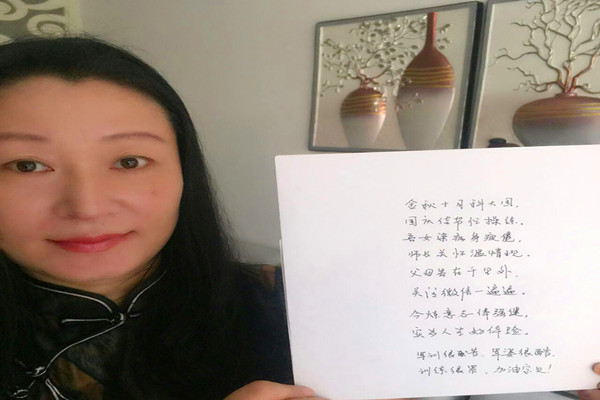 金秋十月科大园,
国孜任节忙操练.
吾女染病身疲惫,
师长关怀温情现.
父母营在千里外,
关注微信一遍遍.
今炼意志体强健,
实为人生好体验.
军训很艰苦、军姿很酷
训练很累、加油宝贝!